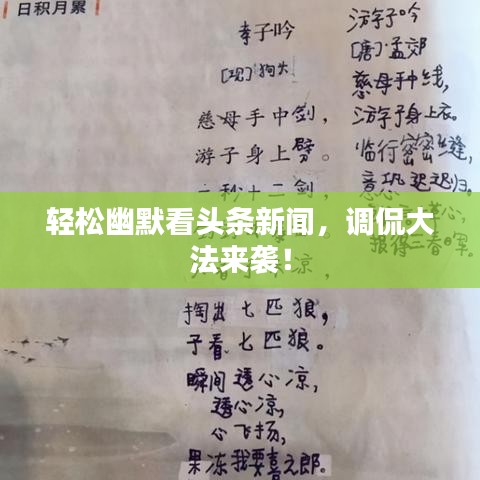 日积月累
李子吟
[现]狗大
慈母手中剑，
游子身上劈。
一秒十二剑，
轻松幽默看头条新闻，调侃大
法来袭！
掏出七匹狼，
子看七匹狼。
瞬间透心凉，
透心凉，
心飞扬，
果冻我要喜之郎。
游子吟
[唐]孟郊
慈母手中线，
游子身上衣。
临行密密缝，
意恐迟迟归。
报得三春晖。